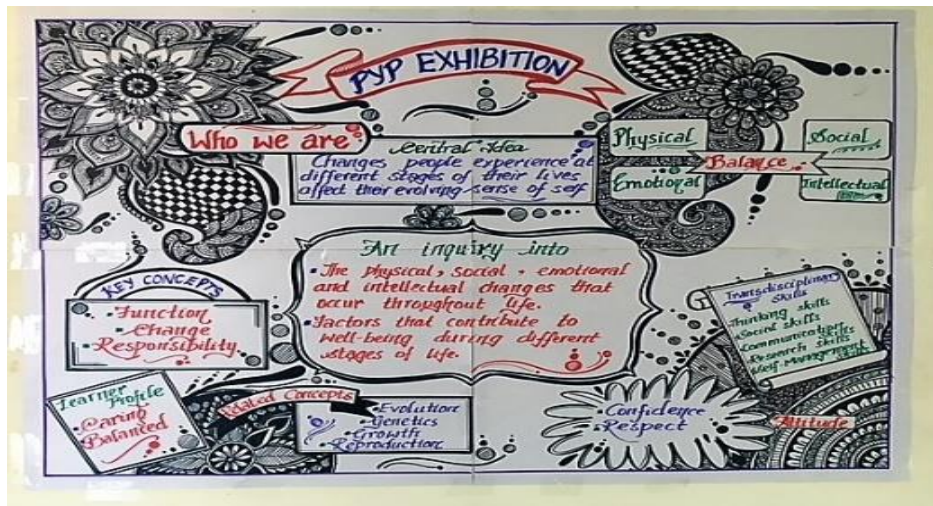 PYP EXHIBITION
Who we are
Central Idea
Changes people experience at
different stages of their lives
affect their evolving sense of self
Physical
Social
Balance
Emotional
Intellectual
An inquiry into
• The physical, social, emotional
and intellectual changes that
occur throughout life.
• Factors that contribute to
well-being during different
stages of life.
KEY CONCEPTS
• Function
• Change
• Responsibility
Transdisciplinary
Skills
Thinking skills
Social skills
Communication skills
Research skills
Self-Management
skills
Learner
Profile
• Caring
• Balanced
Related Concepts
• Evolution
• Genetics
• Growth
• Reproduction
• Confidence
• Respect
Attitude